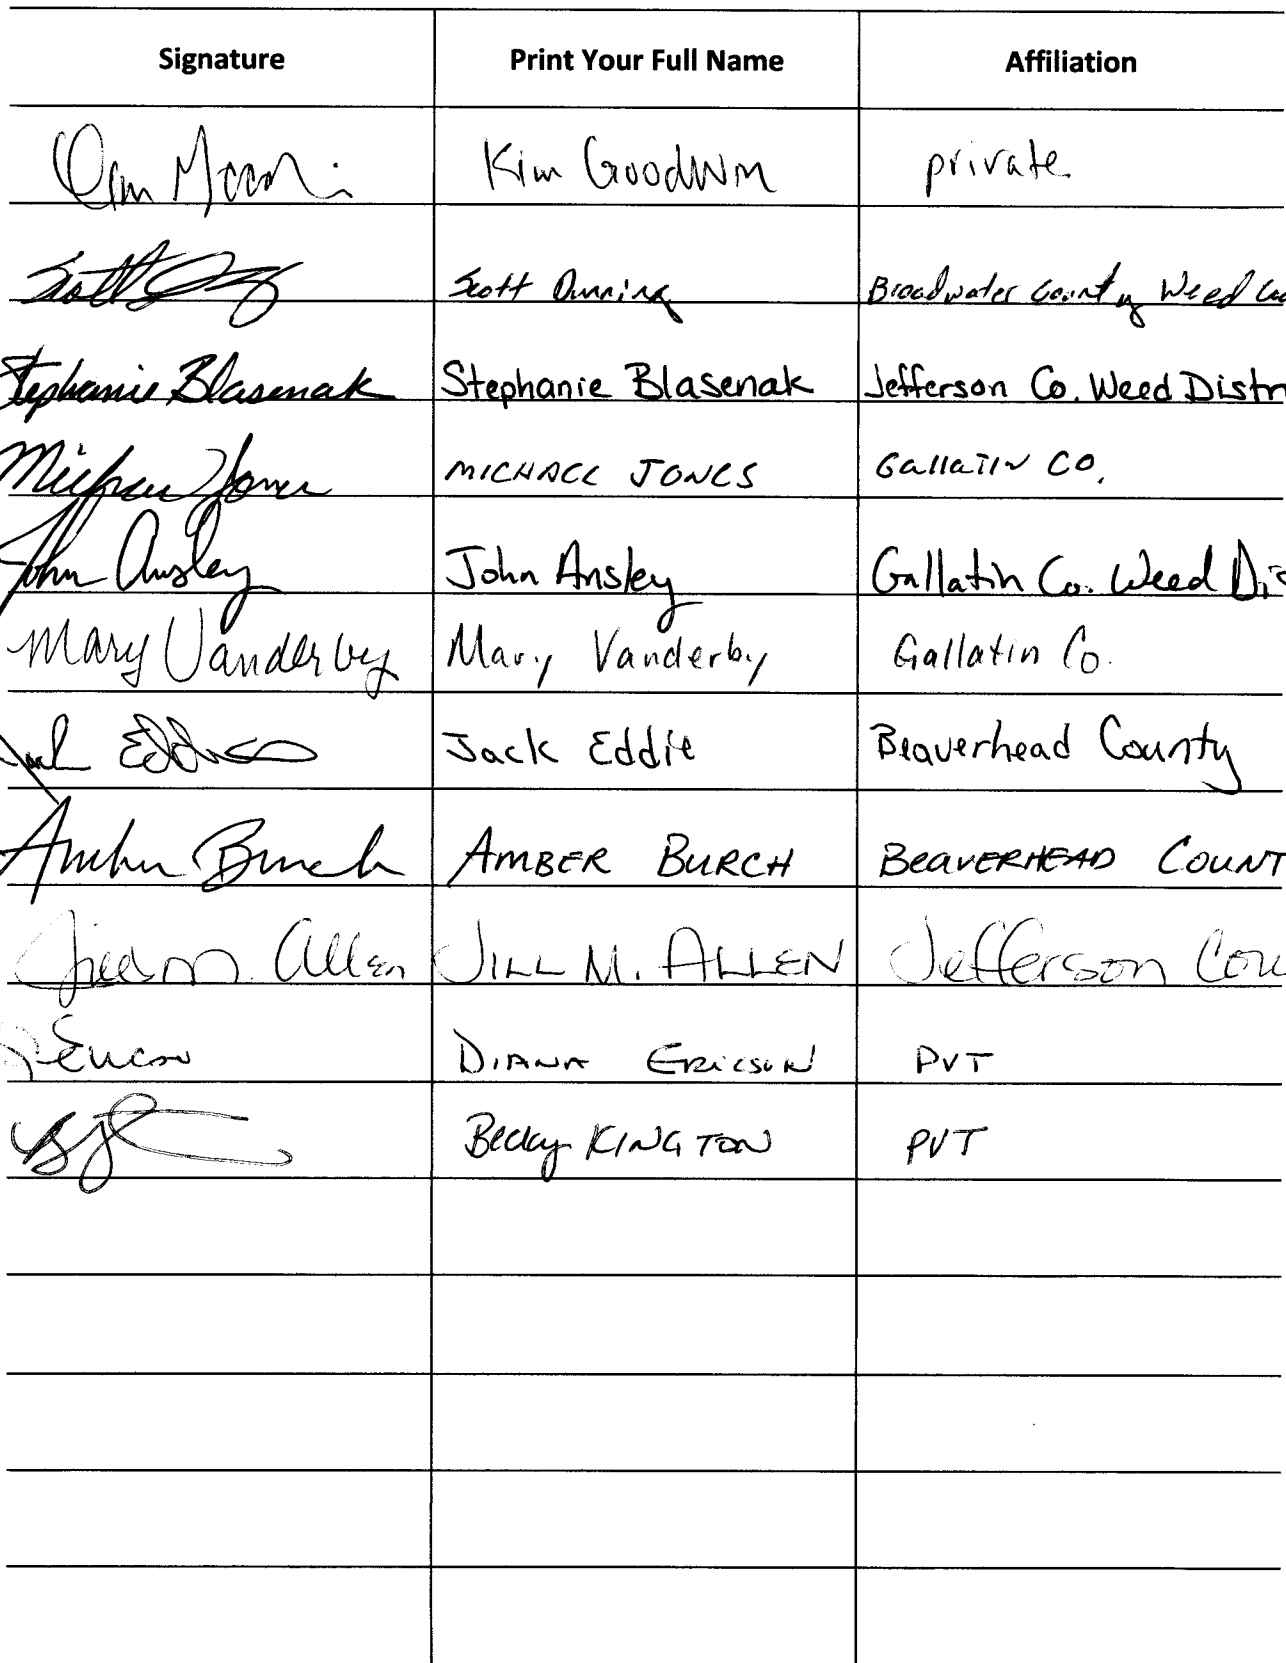 Signature Print Your Full Name Affiliation
Kim Goodwin private
Scott Dunning Broadwater County Weed
Stephanie Blasenak Stephanie Blasenak Jefferson Co. Weed Distr
Michael Jones MICHAEL JONES Gallatin CO.
John Ansley John Ansley Gallatin Co. Weed Dis
Mary Vanderby Mary Vanderby Gallatin Co.
Jack Eddie Jack Eddie Beaverhead County
Amber Burch AMBER BURCH BEAVERHEAD COUNT
Jill M. Allen JILL M. ALLEN Jefferson Cou
Ericson DIANA ERICSON PVT
Becky KINGTON PVT